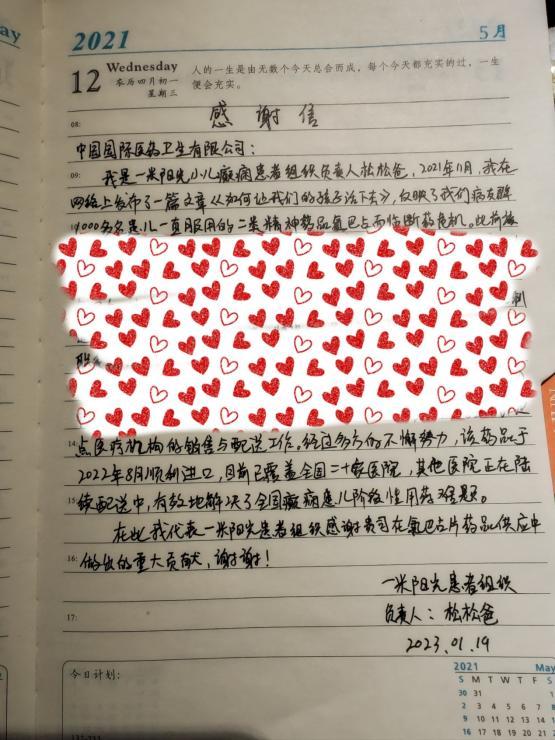 ay
2021
5月
12
Wednesday
农历四月初一
星期三
人的一生是由无数个今天总会而成,每个今天都充实的过,一生
便会充实。
感谢信
08:
中国国际医药卫生有限公司:
09:
我是一米阳光小儿癫痫患者组织负责人松松爸,2021年11月,我在
网络上发布了一篇文章《如何让我们的孩子活下去》,反映了我们病友群
4000多名患儿一直服用的二类精神药品氯巴占面临断药危机。此前被
14:
点医疗机构的销售与配送工作。经过多方的不懈努力,该药品于
2022年8月顺利进口,目前已覆盖全国二十家医院,其他医院正在陆
15:
续配送中,有效地解决了全国癫痫患儿阶段性用药难题。
在此我代表一米阳光患者组织感谢贵司在氯巴占片药品供应中
16:
做出的重大贡献,谢谢!
一米阳光患者组织
17:
负责人:松松爸
2023.01.19
今日计划:
2021
May
S M T W T F S
30 31
2 3 4 5 6 7
9 10 11 12 13 14
16 17 18 19 20 21